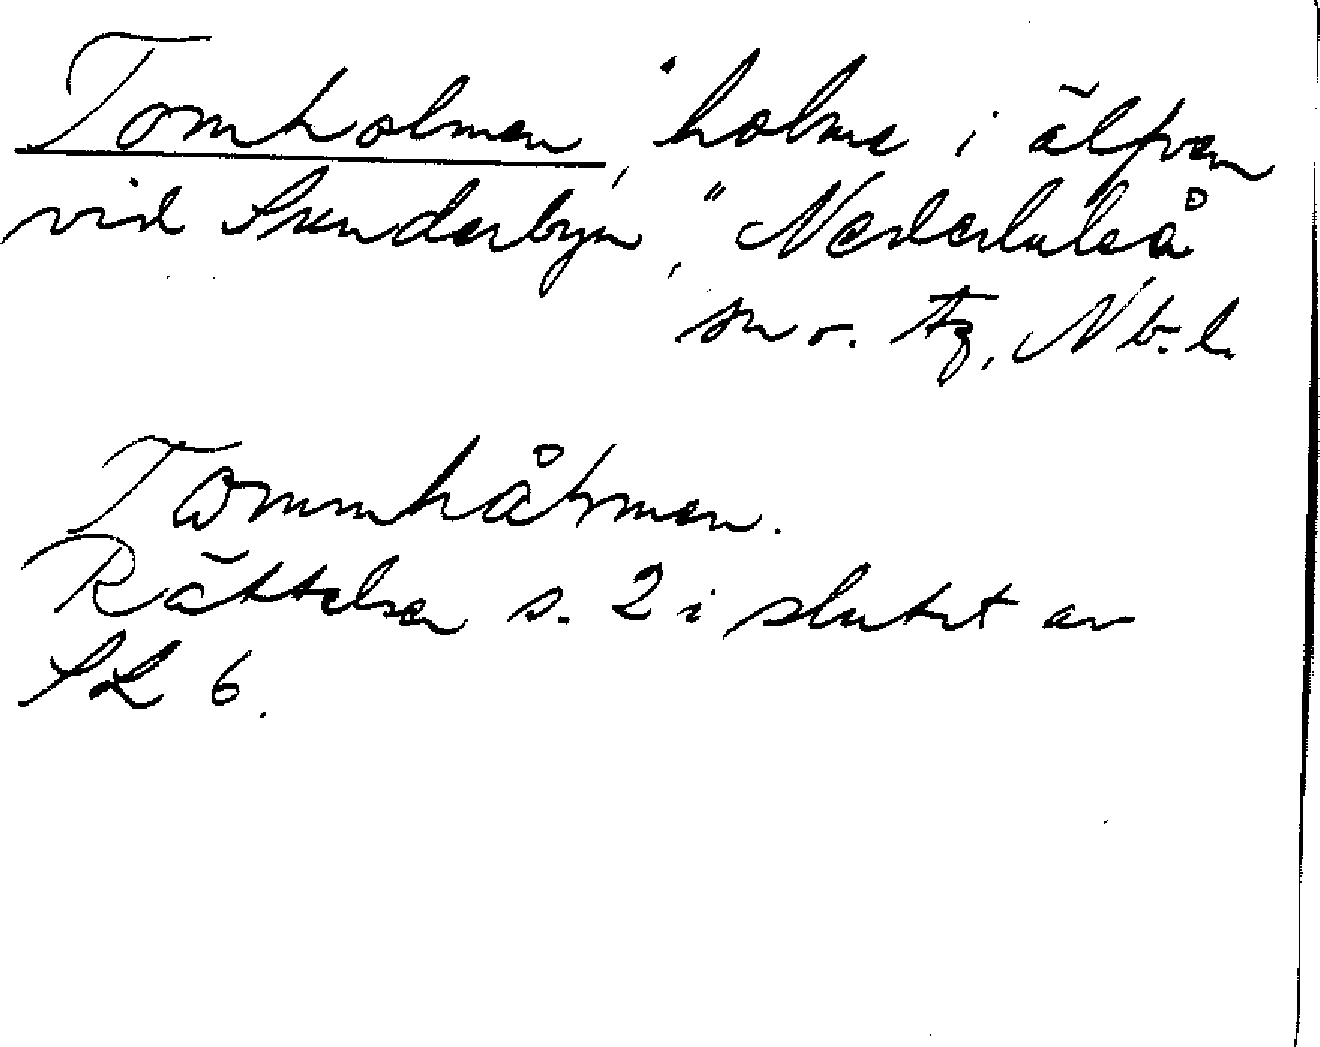 Tomholmen, "holme i älfven
vid Sunderbyn", Nederluleå
sn o. tg, Nb. l.
Tommhåłmen.
Rättelser s. 2 i slutet av
SL 6.